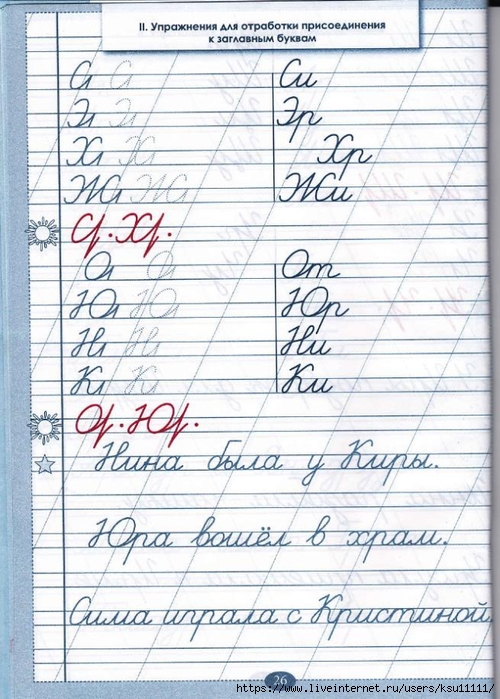 II. Упражнения для отработки присоединения
к заглавным буквам
Сı Сı Си
Эı Эı Эр
Хı Хı Хр
Жı Жı Жи
Ср. Хр.
Оı Оı От
Юı Юı Юр
Нı Нı Ни
Кı Кı Ки
Ор. Юр.
Нина была у Киры.
Юра вошёл в храм.
Сима играла с Кристиной.
26
https://www.liveinternet.ru/users/ksu11111/